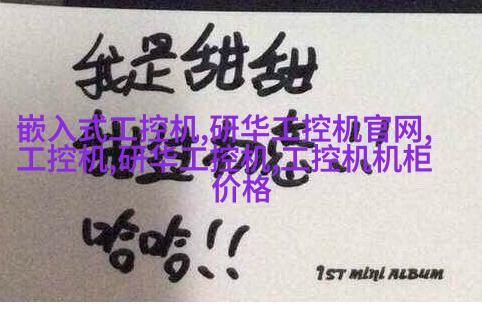 我是甜甜
嵌入式工控机,研华工控机官网,
工控机,研华工控机,工控机机柜
价格
哈哈!!
1ST MINI ALBUM